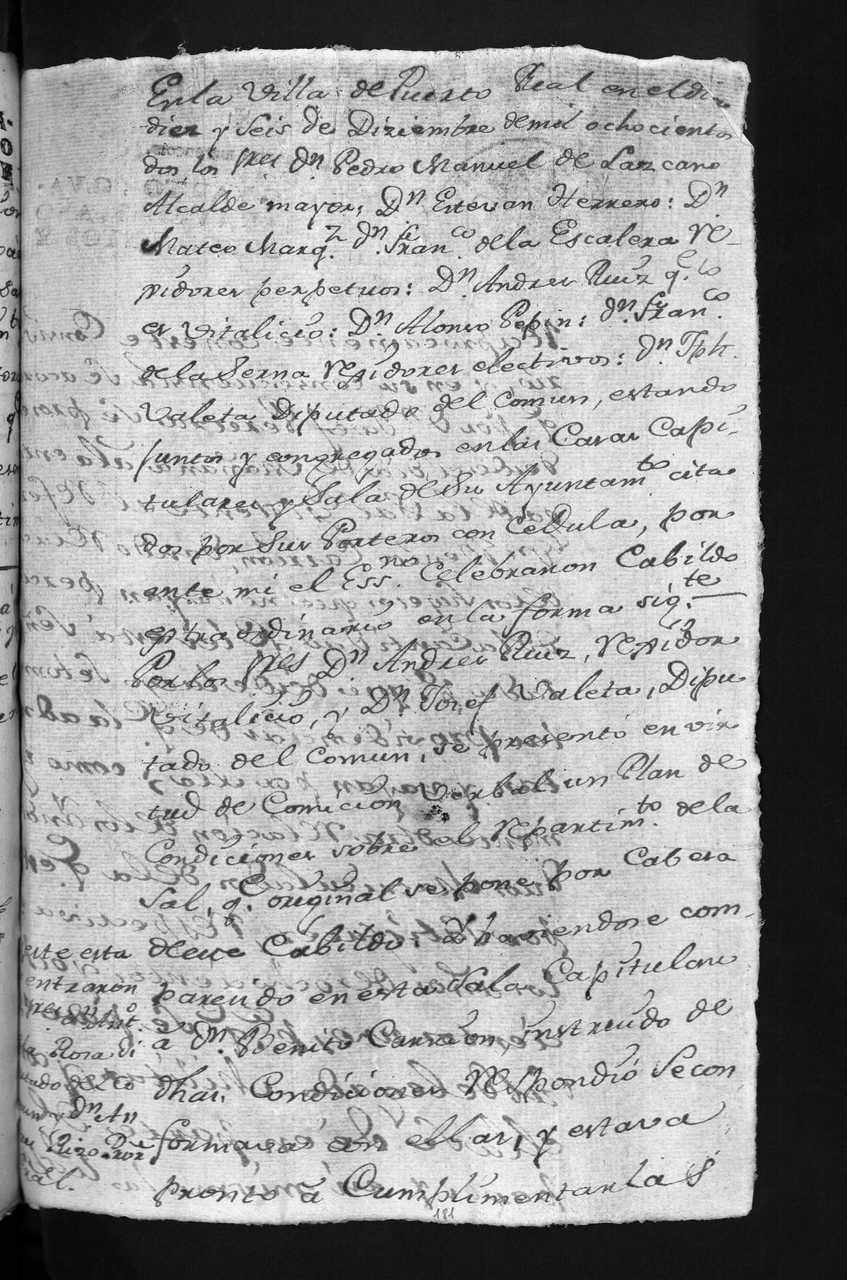 En la Villa de Puerto Real en el dia
diez y seis de Diziembre de mil ochocientos
dos los Sres Dn Pedro Manuel de Lazcano
Alcalde mayor; Dn Estevan Herrero: Dn
Mateo Marqz. dn. Franco. de la Escalera Re-
xidores perpetuos: Dn Andres Ruiz qe. lo
es vitalicio: Dn Alonso Pepin: dn. Franco.
de la Serna Rexidores electivos: dn. Jph.
Valeta Diputado del Comun, estando
juntos y congregados en las Casas Capi-
tulares y Sala de Su Ayuntamto. cita
dos por Sus Porteros con Cedula, por
ante mi el Essno. Celebraron Cabildo
extraordinario en la forma sigte.
Por los Sres Dn Andres Ruiz, Rexidor
vitalicio, y Dn. Josef Valeta, Dipu
tado del Comun, se presentó en vir
tud de Comicion Verbal un Plan de
Condiciones sobre el Repartimto. de la
Sal, qe. original se pone por Cabesa
de este Cabildo; Y haviendose com-
parecido en esta Sala Capitular
a Dn. Benito Carrion instruido de
dhas. Condiciones Respondió Se con
formava con ellas, y estava
pronto a Cumplimentarlas
este esta
entraron
Sres dn Anto.
la Rosa di
utado del Co
mun y dn An
Rizo Pror
ral.
181